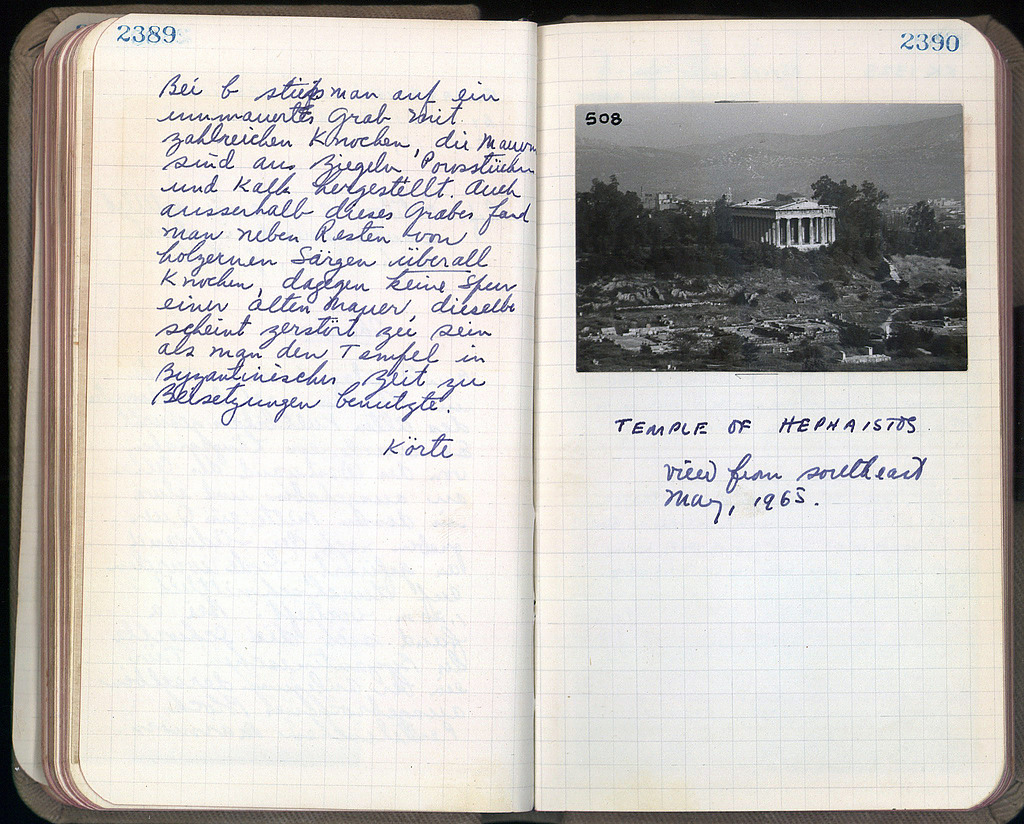 2389
Bei b stiess man auf ein
ummauertes Grab mit
zahlreichen Knochen, die Mauern
sind aus Ziegeln, Porosstücken
und Kalk hergestellt. Auch
ausserhalb dieses Grabes fand
man neben Resten von
holzernen Särgen überall
Knochen, dagegen keine Spur
einer alten Mauer, dieselbe
scheint zerstört zu sein
als man den Tempel in
Byzantinischer Zeit zu
Beisetzungen benutzte.
Körte
2390
508
TEMPLE OF HEPHAISTOS.
view from southeast
May, 1965.